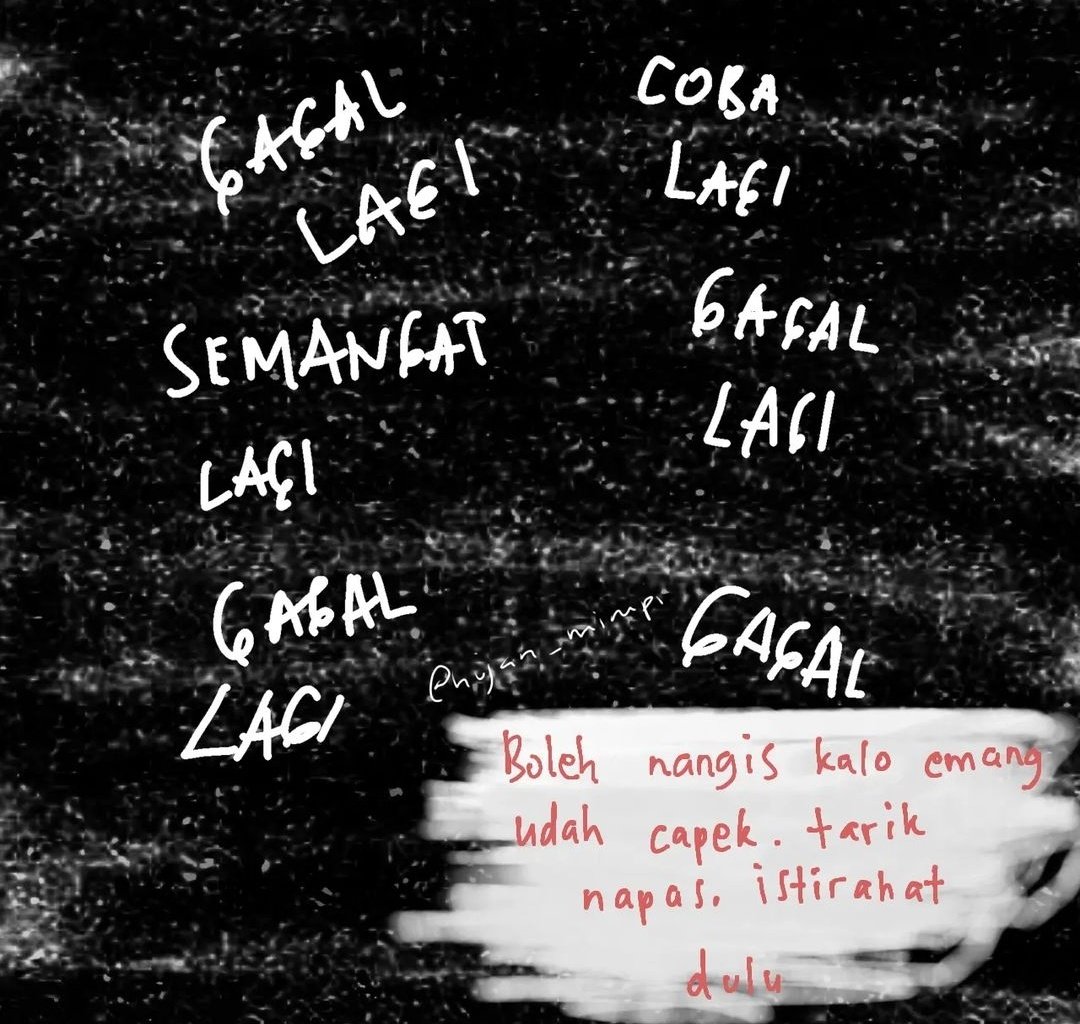 GAGAL
LAGI
SEMANGAT
LAGI
GAGAL
LAGI
COBA
LAGI
GAGAL
LAGI
GAGAL
@hujan_mimpi
Boleh nangis kalo emang
udah capek. tarik
napas. istirahat
dulu